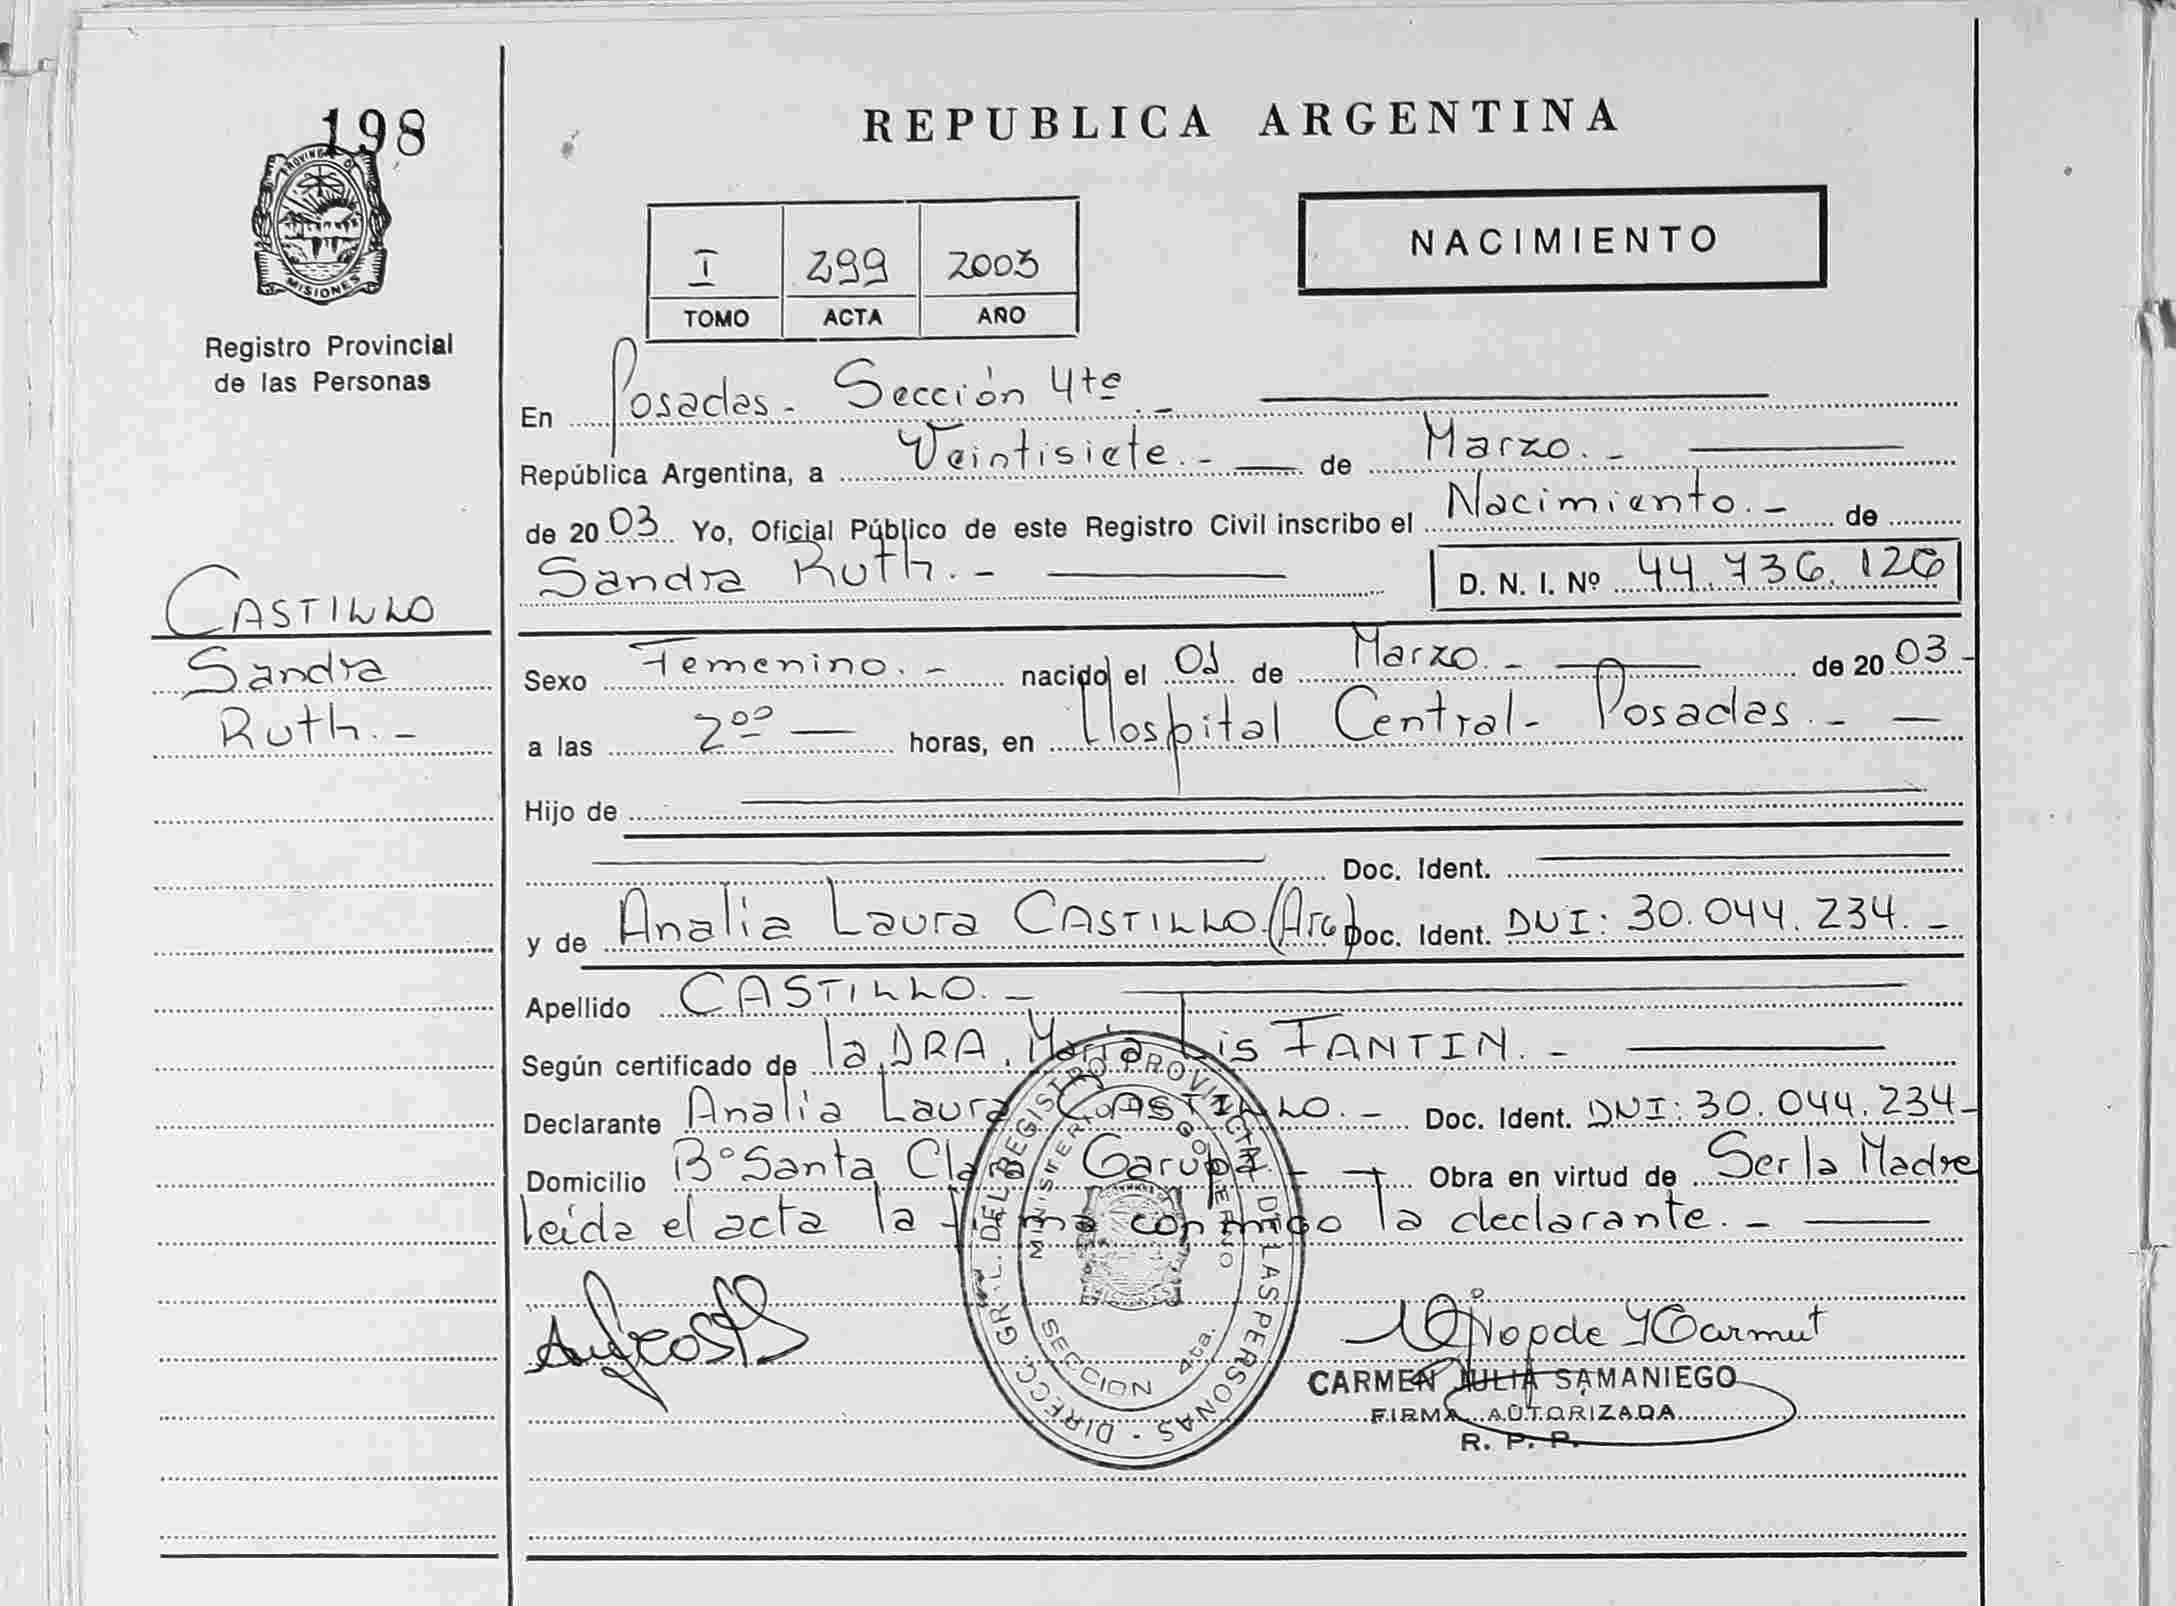 198
PROVINCIA DE
MISIONES
Registro Provincial
de las Personas
CASTILLO
Sandra
Ruth.-
REPUBLICA ARGENTINA
I 299 2003
TOMO ACTA AÑO
NACIMIENTO
En Posadas- Sección 4ta.-
República Argentina, a Veintisiete.- de Marzo.-
de 2003 Yo, Oficial Público de este Registro Civil inscribo el Nacimiento.- de
Sandra Ruth.- D. N. I. Nº 44.736.126
Sexo Femenino.- nacido el 01 de Marzo.- de 2003-
a las 2⁰⁰ horas, en Hospital Central- Posadas.-
Hijo de
Doc. Ident.
y de Analia Laura CASTILLO (Arg) Doc. Ident. DNI: 30.044.234.-
Apellido CASTILLO.-
Según certificado de la DRA. Lis FANTIN.-
Declarante Analia Laura CASTILLO.- Doc. Ident. DNI: 30.044.234-
Domicilio Bº Santa Clara Garupá - Obra en virtud de Ser la Madre
leida el acta la firma conmigo la declarante.-
DIRECC. GRAL. DEL REGISTRO PROVINCIAL DE LAS PERSONAS
MINISTERIO DE GOBIERNO
SECCION 4ta.
CARMEN JULIA SAMANIEGO
FIRMA AUTORIZADA
R. P. P.